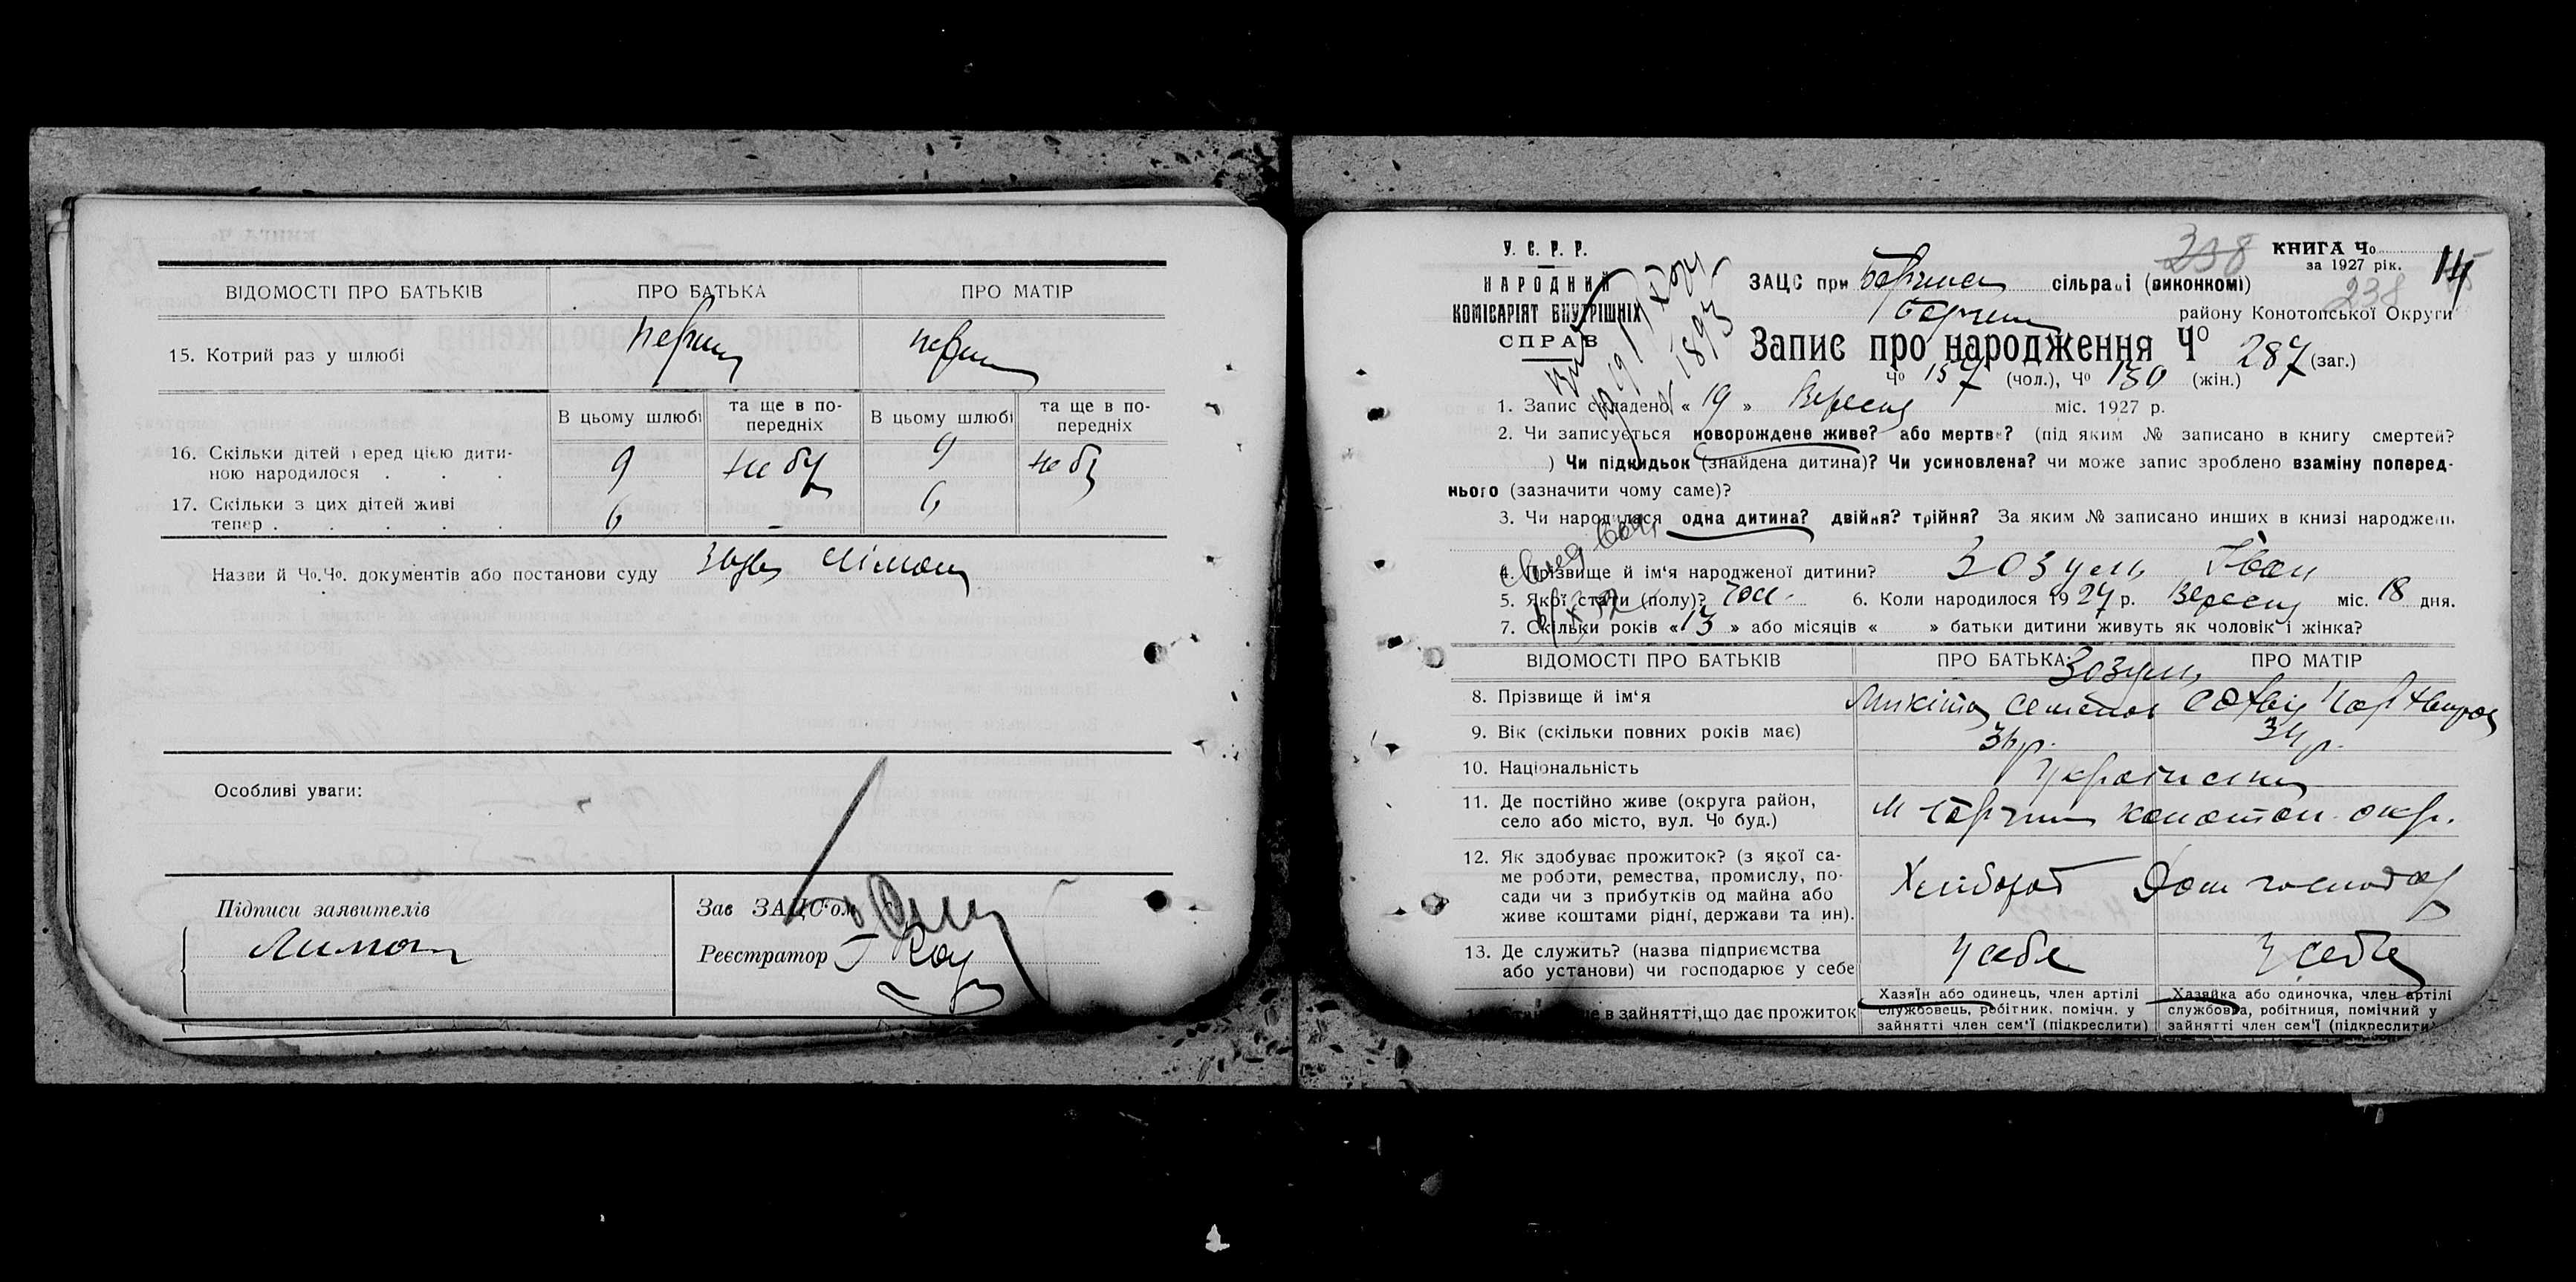 ВІДОМОСТІ ПРО БАТЬКІВ ПРО БАТЬКА ПРО МАТІР
15. Котрий раз у шлюбі перший перший
В цьому шлюбі та ще в по-передніх В цьому шлюбі та ще в по-передніх
16. Скільки дітей перед цією дити-
ною народилося . . . 9 не бу 9 не бу
17. Скільки з цих дітей живі
тепер . . . . . 6 - 6
Назви й Чо.Чо. документів або постанови суду
Особливі уваги:
Підписи заявителів Зав ЗАЦС'ом
Лимон Реєстратор
У. С. Р. Р.
НАРОДНИЙ
КОМІСАРІЯТ ВНУТРІШНІХ
СПРАВ
238 КНИГА Чо
за 1927 рік. 14
ЗАЦС при сільраді (виконкомі) 238
району Конотопської Округи
Запис про народження Чо 287 (заг.)
Чо 157 (чол.), Чо 130 (жін.)
1893
1. Запис складено « 19 » Вересня міс. 1927 р.
2. Чи записується новорождене живе? або мертве? (під яким № записано в книгу смертей?
) Чи підкидьок (знайдена дитина)? Чи усиновлена? чи може запис зроблено взаміну поперед-
нього (зазначити чому саме)?
3. Чи народилася одна дитина? двійня? трійня? За яким № записано инших в книзі народжень
4. Прізвище й ім'я народженої дитини? Зозуля Іван
5. Якої статі (полу)? чол. 6. Коли народилося 1927 р. Вересня міс. 18 дня.
7. Скільки років « 13 » або місяців « » батьки дитини живуть як чоловік і жінка?
ВІДОМОСТІ ПРО БАТЬКІВ ПРО БАТЬКА ПРО МАТІР
Зозуля
8. Прізвище й ім'я Микита Семенов
9. Вік (скільки повних років має) 36 р. 34 р.
10. Національність Українська
11. Де постійно живе (округа район,
село або місто, вул. Чо буд.) м конотоп. окр.
12. Як здобуває прожиток? (з якої са-
ме роботи, ремества, промислу, по-
сади чи з прибутків од майна або
живе коштами рідні, держави та ин). Хлібороб Дом господар
13. Де служить? (назва підприємства
або установи) чи господарює у себе У себе У себе
в зайнятті, що дає прожиток
Хазяїн або одинець, член артілі
службовець, робітник, помічн. у
зайнятті член сем'ї (підкреслити)
Хазяйка або одиночка, член артілі
службовка, робітниця, помічний у
зайнятті член сем'ї (підкреслити)